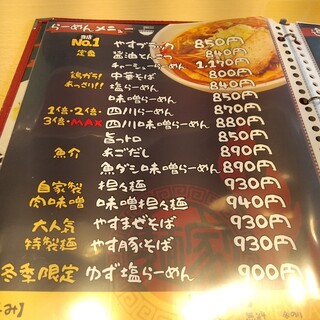 らーめんメニュー
当店No.1 やすブラック 850円
定番 醤油とんこつ 840円
チャーシューらーめん 1.170円
鶏ガラ! 中華そば 800円
あっさり!! 塩らーめん 840円
味噌らーめん 850円
1倍・2倍・ 四川らーめん 870円
3倍・MAX 四川味噌らーめん 880円
旨っトロ 850円
魚介 あごだし 890円
魚ダシ味噌らーめん 890円
自家製 担々麺 930円
肉味噌 味噌担々麺 940円
大人気 やすまぜそば 930円
特製麺 やす豚そば 930円
冬季限定 ゆず塩らーめん 900円